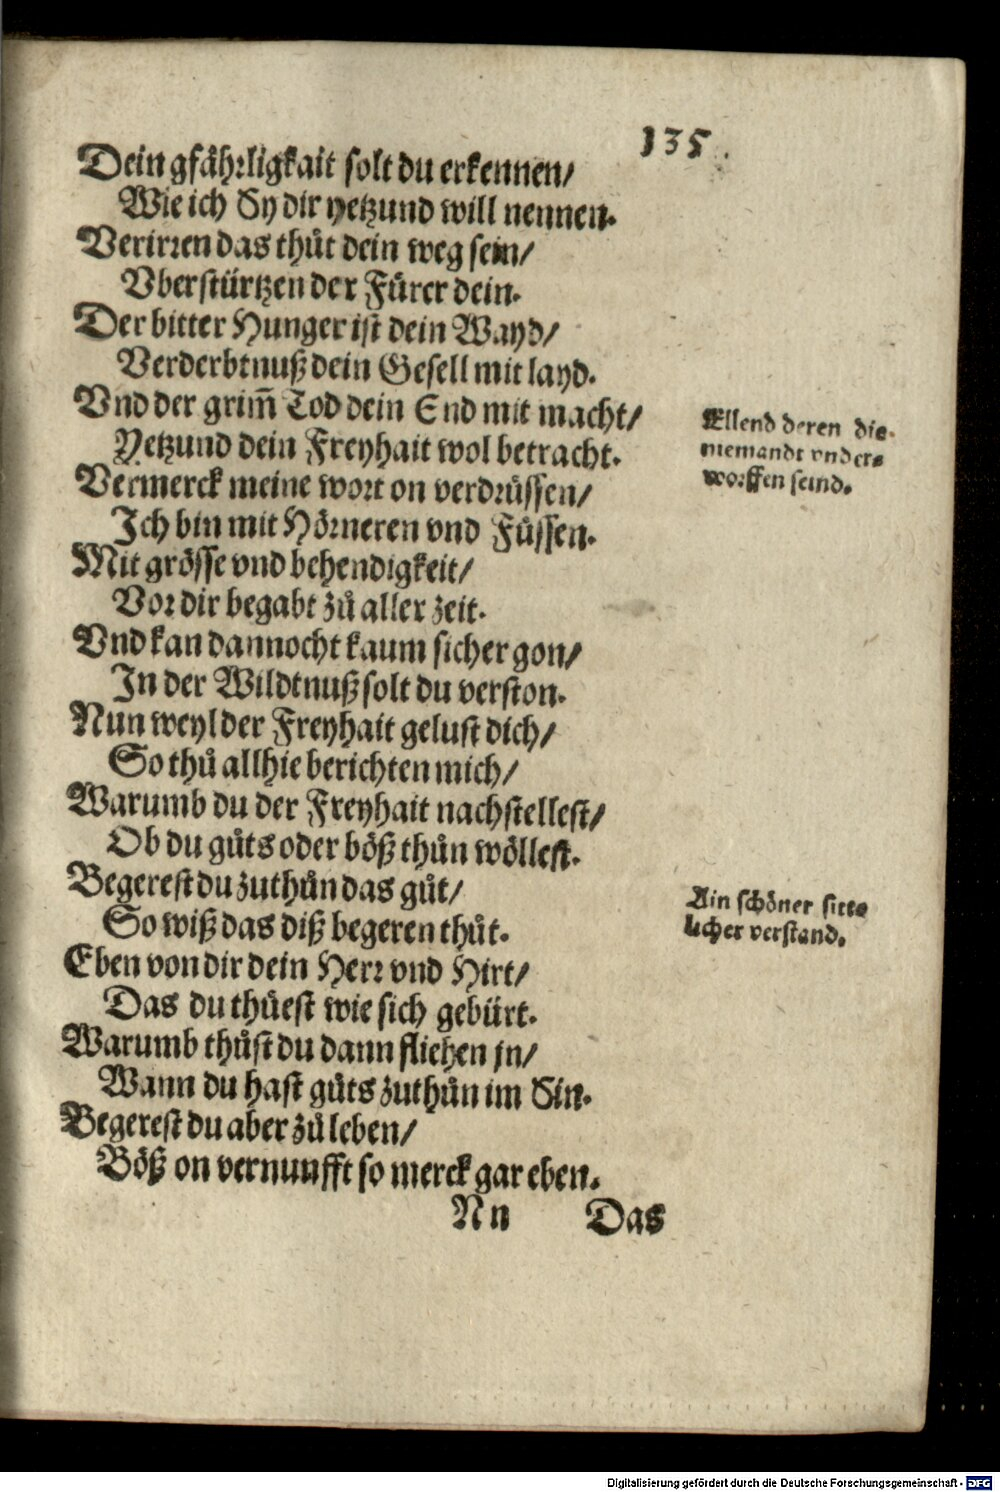 135.
Dein gfährligkait solt du erkennen/
Wie ich Sy dir yetzund will nennen.
Verirren das thůt dein weg sein/
Vberstürtzen der Fürer dein.
Der bitter Hunger ist dein Wayd/
Verderbtnuß dein Gesell mit layd.
Vnd der grim̃ Tod dein End mit macht/
Yetzund dein Freyhait wol betracht.
Ellend deren die
niemandt vnder=
worffen seind.
Vermerck meine wort on verdrüssen/
Ich bin mit Hörneren vnd Füssen.
Mit grösse vnd behendigkeit/
Vor dir begabt zů aller zeit.
Vnd kan dannocht kaum sicher gon/
In der Wildtnuß solt du verston.
Nun weyl der Freyhait gelust dich/
So thů allhie berichten mich/
Warumb du der Freyhait nachstellest/
Ob du gůts oder böß thůn wöllest.
Begerest du zuthůn das gůt/
So wiß das diß begeren thůt.
Ain schöner sitt=
licher verstand.
Eben von dir dein Herr vnd Hirt/
Das du thüest wie sich gebürt.
Warumb thůst du dann fliehen jn/
Wann du hast gůts zuthůn im Sin.
Begerest du aber zů leben/
Böß on vernunfft so merck gar eben.
Nn Das
Digitalisierung gefördert durch die Deutsche Forschungsgemeinschaft - DFG